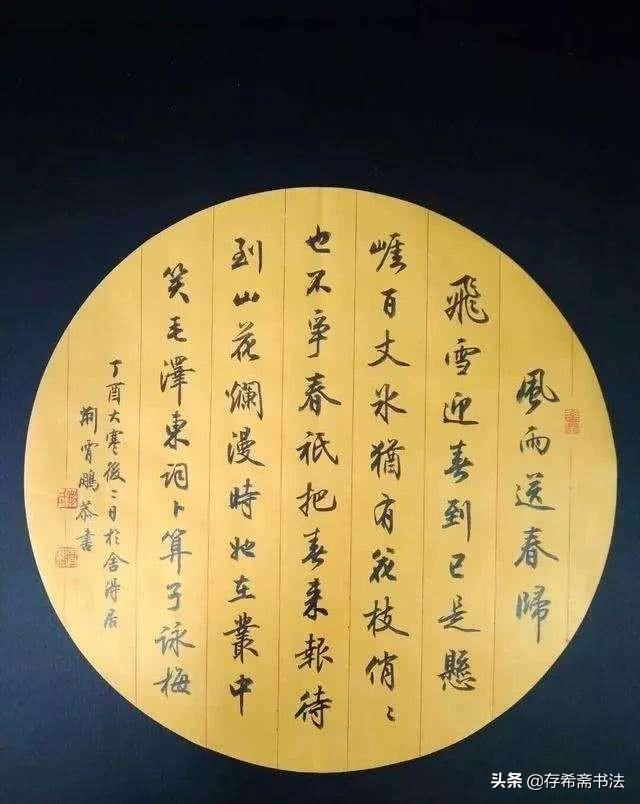 風雨送春歸
飛雪迎春到已是懸
崖百丈冰猶有花枝俏〻
也不爭春祇把春來報待
到山花爛漫時她在叢中
笑毛澤東詞卜算子詠梅
丁酉大寒後二日於舍得居
荊霄鵬恭書
头条@存希斋书法